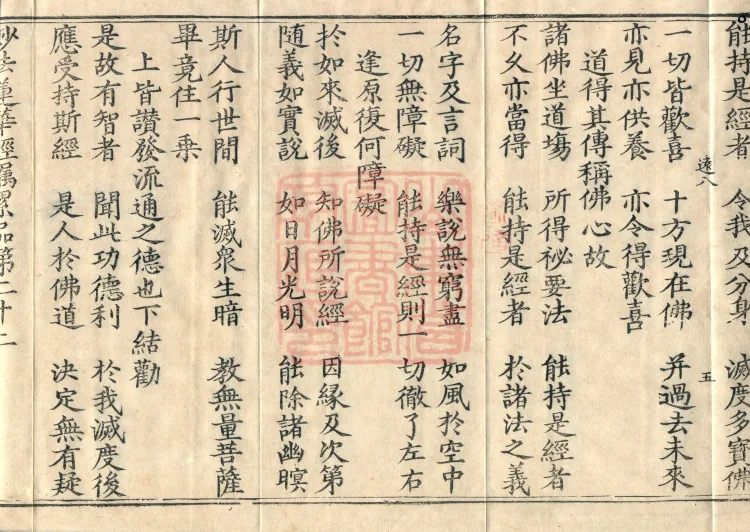 能持是經者 令我及分身 滅度多寶佛
一切皆歡喜 十方現在佛 并過去未來
亦見亦供養 亦令得歡喜
道得其傳稱佛心故
諸佛坐道場 所得祕要法 能持是經者
不久亦當得 能持是經者 於諸法之義
名字及言詞 樂說無窮盡 如風於空中
一切無障礙 能持是經則一切徹了左右
逢原復何障礙
於如來滅後 知佛所說經 因緣及次第
隨義如實說 如日月光明 能除諸幽暝
斯人行世間 能滅眾生暗 教無量菩薩
畢竟住一乘
上皆讚發流通之德也下結勸
是故有智者 聞此功德利 於我滅度後
應受持斯經 是人於佛道 決定無有疑
妙法蓮華經囑累品第二十二
遠八
五